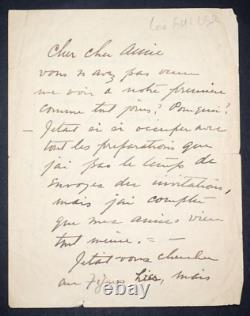 Cher cher amie
vous n avez pas venue
me voir a notre première
comme tout jours? Pourquoi?
J'etait si si occuper avec
tout les preparations que
j'ai pas le temps de
envoyer des invitations,
mais j'ai compter
que mes amies vien
tout meme. —
J'etait vous chercher
au hier, mais